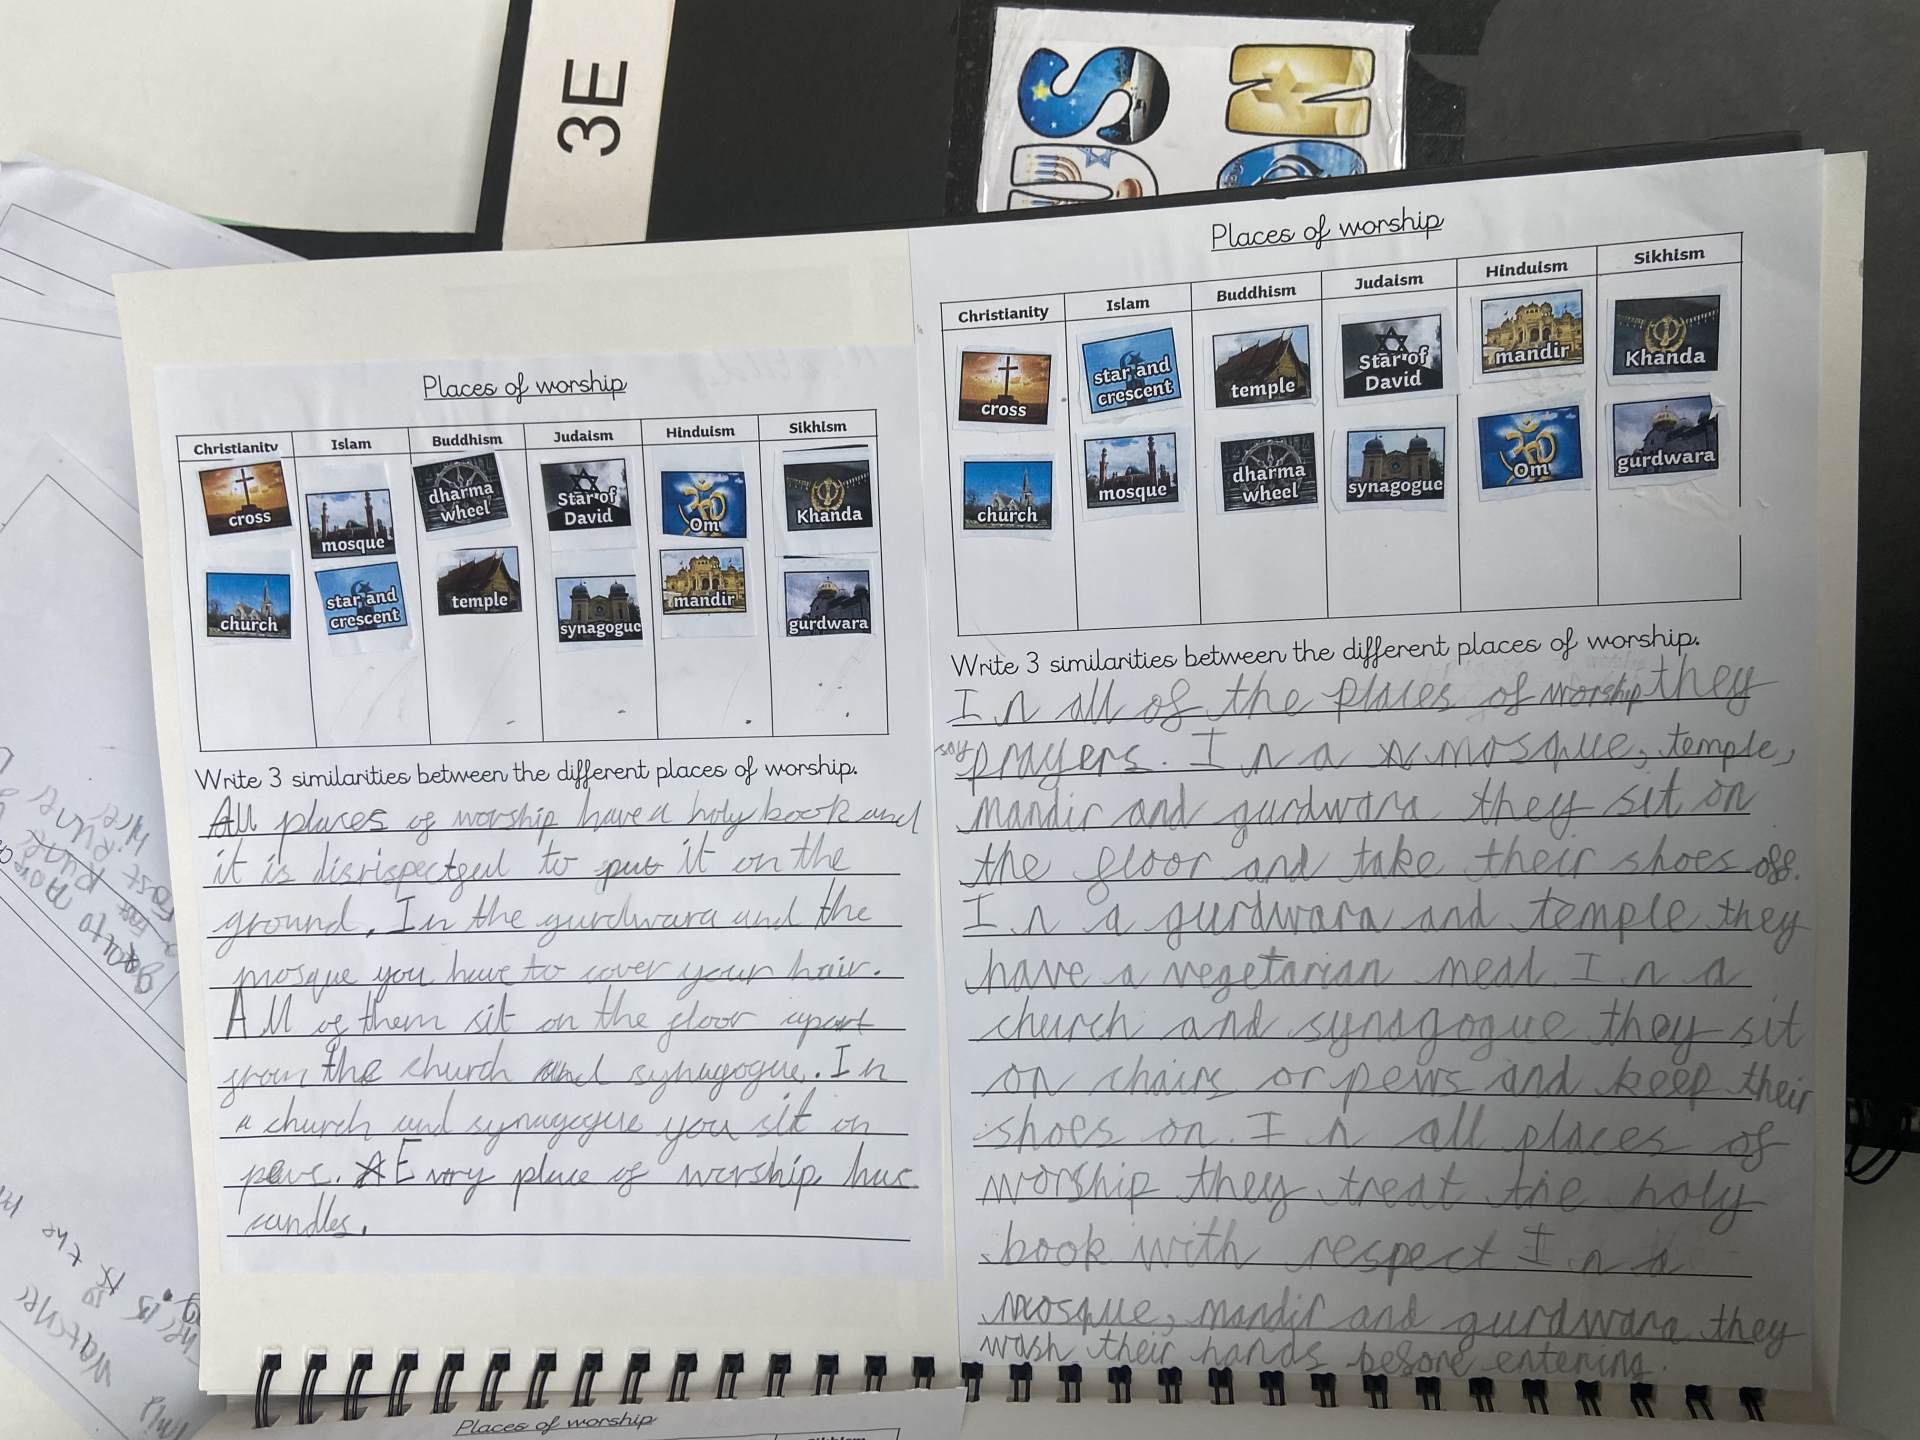 3E
S
N
Places of worship
Christianity Islam Buddhism Judaism Hinduism Sikhism
cross mosque dharma wheel Star of David Om Khanda
church star and crescent temple synagogue mandir gurdwara
Write 3 similarities between the different places of worship.
All places of worship have a holy book and
it is disrispectged to put it on the
ground. In the gurdwara and the
mosque you have to cover your hair.
All of them sit on the floor apart
from the church and synagogue. In
a church and synagogue you sit on
pews. Every place of worship has
candles.
Places of worship
Christianity Islam Buddhism Judaism Hinduism Sikhism
cross star and crescent temple Star of David mandir Khanda
church mosque dharma wheel synagogue Om gurdwara
Write 3 similarities between the different places of worship.
In all of the places of worship they
say prayers. In a mosque, temple,
mandir and gurdwara they sit on
the floor and take their shoes off.
In a gurdwara and temple they
have a vegetarian meal. In a
church and synagogue they sit
on chairs or pews and keep their
shoes on. In all places of
worship they treat the holy
book with respect In a
mosque, mandir and gurdwara they
wash their hands before entering.
Places of worship